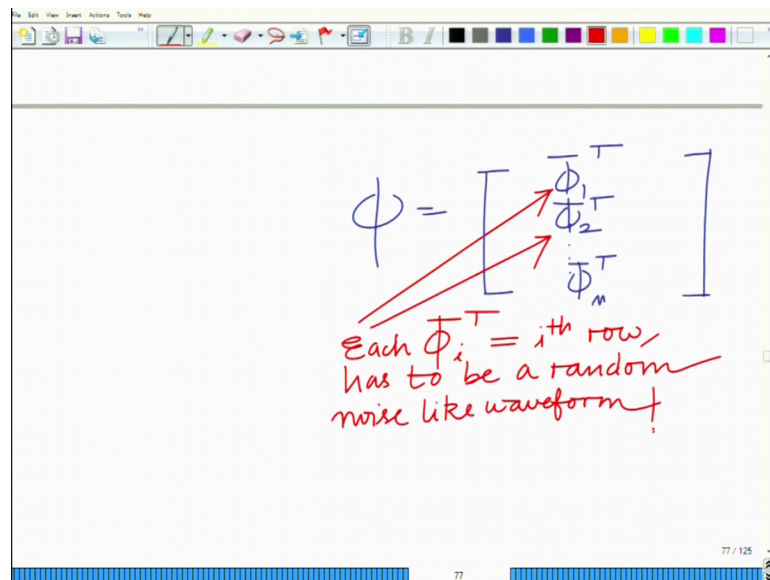 File Edit View Insert Actions Tools Help
B I
Φ = [ Φ̄₁ᵀ
Φ̄₂ᵀ
⋮
Φ̄ₘᵀ ]
Each Φ̄ᵢᵀ = iᵗʰ row,
has to be a random
noise like waveform!
77 / 125
77